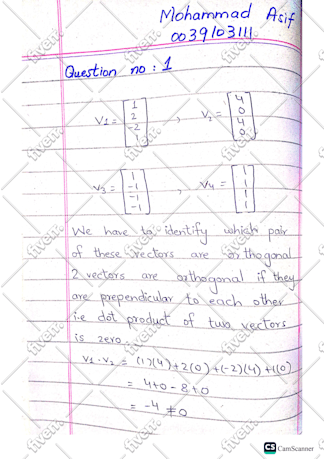 Mohammad Asif
0039103111
Question no : 1
V1 = [1 2 -2 1] , V2 = [4 0 4 0]
V3 = [1 -1 -1 -1] , V4 = [1 1 1 1]
We have to identify which pair
of these vectors are orthogonal
2 vectors are orthogonal if they
are prependicular to each other
i.e dot product of two vectors
is zero.
V1 . V2 = (1)(4) + 2(0) + (-2)(4) + 1(0)
= 4+0 - 8+0
= -4 ≠ 0
fiverr.
CS CamScanner